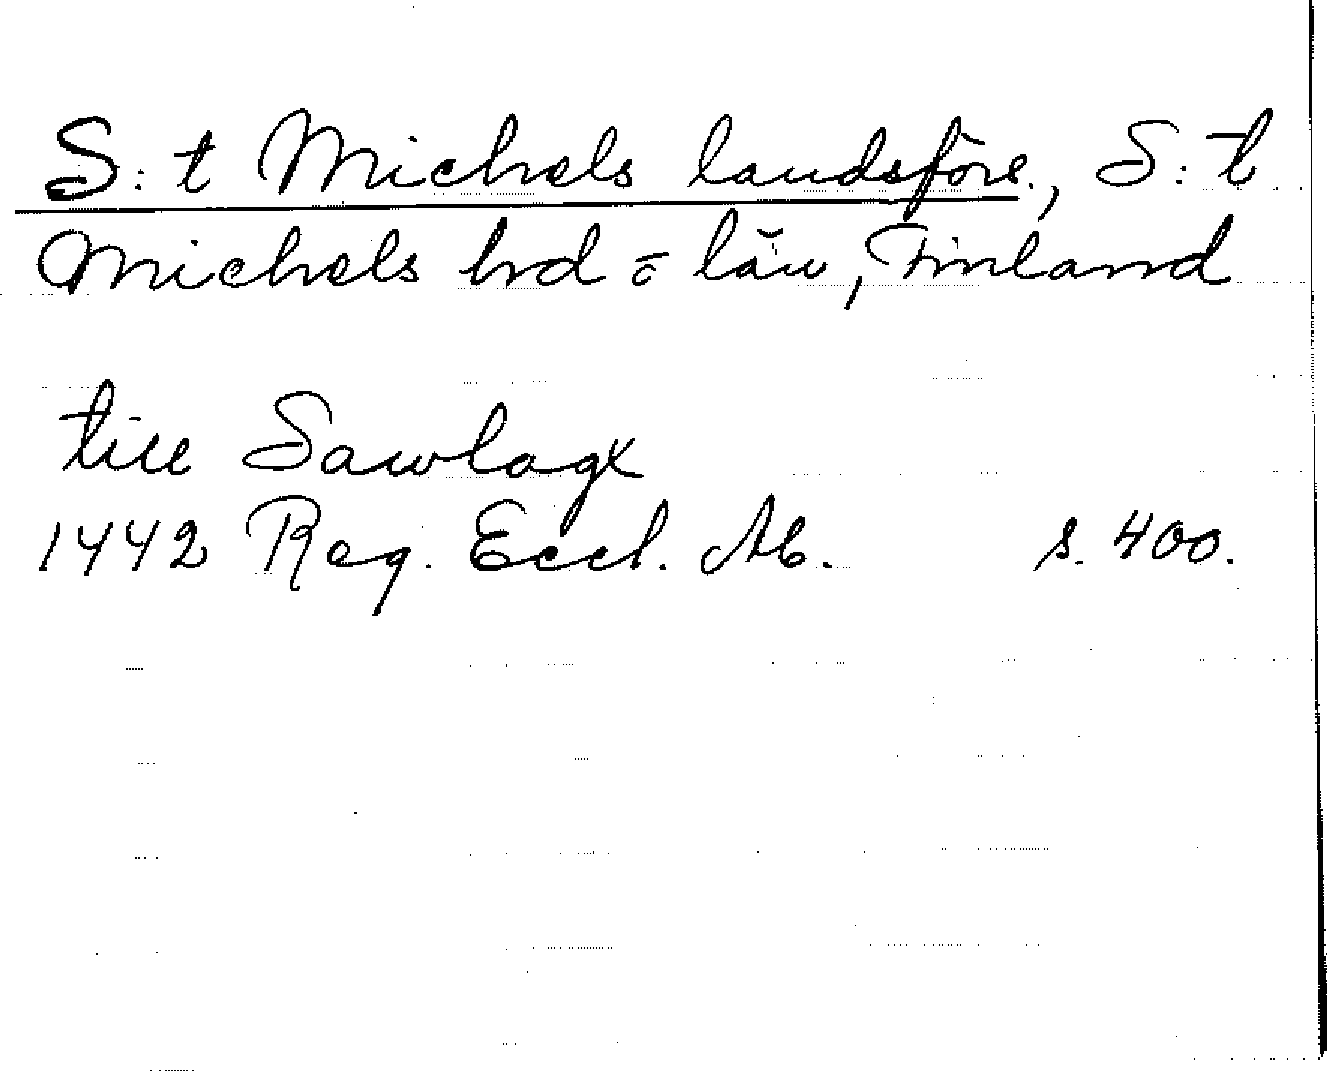 S:t Michels landsförs., S:t
Michels hd o län, Finland
till Sawlagx
1442 Reg. Eccl. Ab. s. 400.